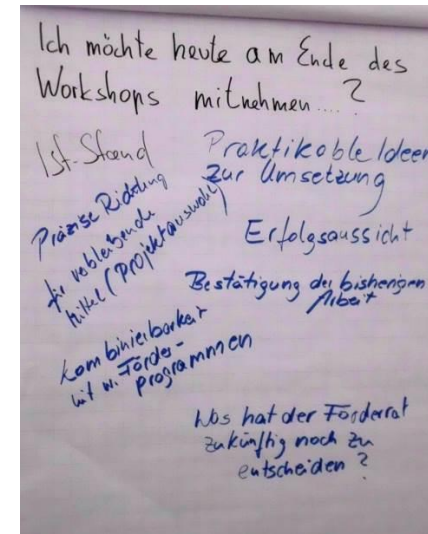 Ich möchte heute am Ende des
Workshops mitnehmen....?
Ist-Stand
Praktikable Ideen
zur Umsetzung
Präzise Richtung
für verbleibende
Mittel (Projektauswahl)
Erfolgsaussicht
Bestätigung der bisherigen
Arbeit
Kombinierbarkeit
mit w. Förder-
programmen
Was hat der Förderrat
zukünftig noch zu
entscheiden?